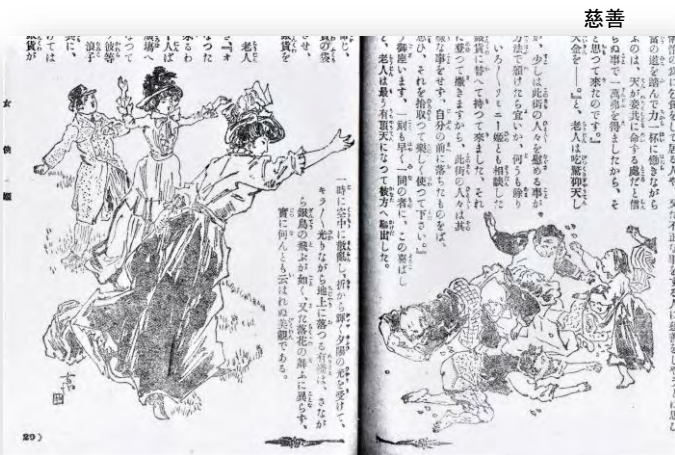 慈善
當の送を踏んで力一杯に働きながら
ふのは、天が姿共に命ずる處だと信
らぬ事で一萬弗を得ましたから、そ
と思つて來たのです。』
大金を――。』と、老人は吃驚仰天し
が、少しは此街の人々を慰める事が
方法で頒けたら宜いか、何うも餘
いろ〳〵リミニー姫とも相談した
銀貨に替へて持つて來ました、それ
に登つて撒きますから、此街の人々は其
樣な事をせず、自分の前に落ちたものをば、
思ひ、それを拾取つて樂しく使つて下さい。』
う御座います、一刻も早く一同の者に、この喜ばし
と、老人は最う有頂天になつて彼方へ駈出した。
命じ、
貨の袋
せ、
銀貨を
老人
『オ
なつた
來るわ
十人ば
廣場へ
なつて
彼等
浪子
共に、
けては
銀貨が
女俠姬
一時に空中に散亂し、折から輝く夕陽の光を受けて、
キラ〳〵光りながら地上に落つる有樣は、さなが
ら銀鳥の飛ぶが如く、又た落花の舞ふに異らず、
實に何んとも云はれぬ美觀である。
29)